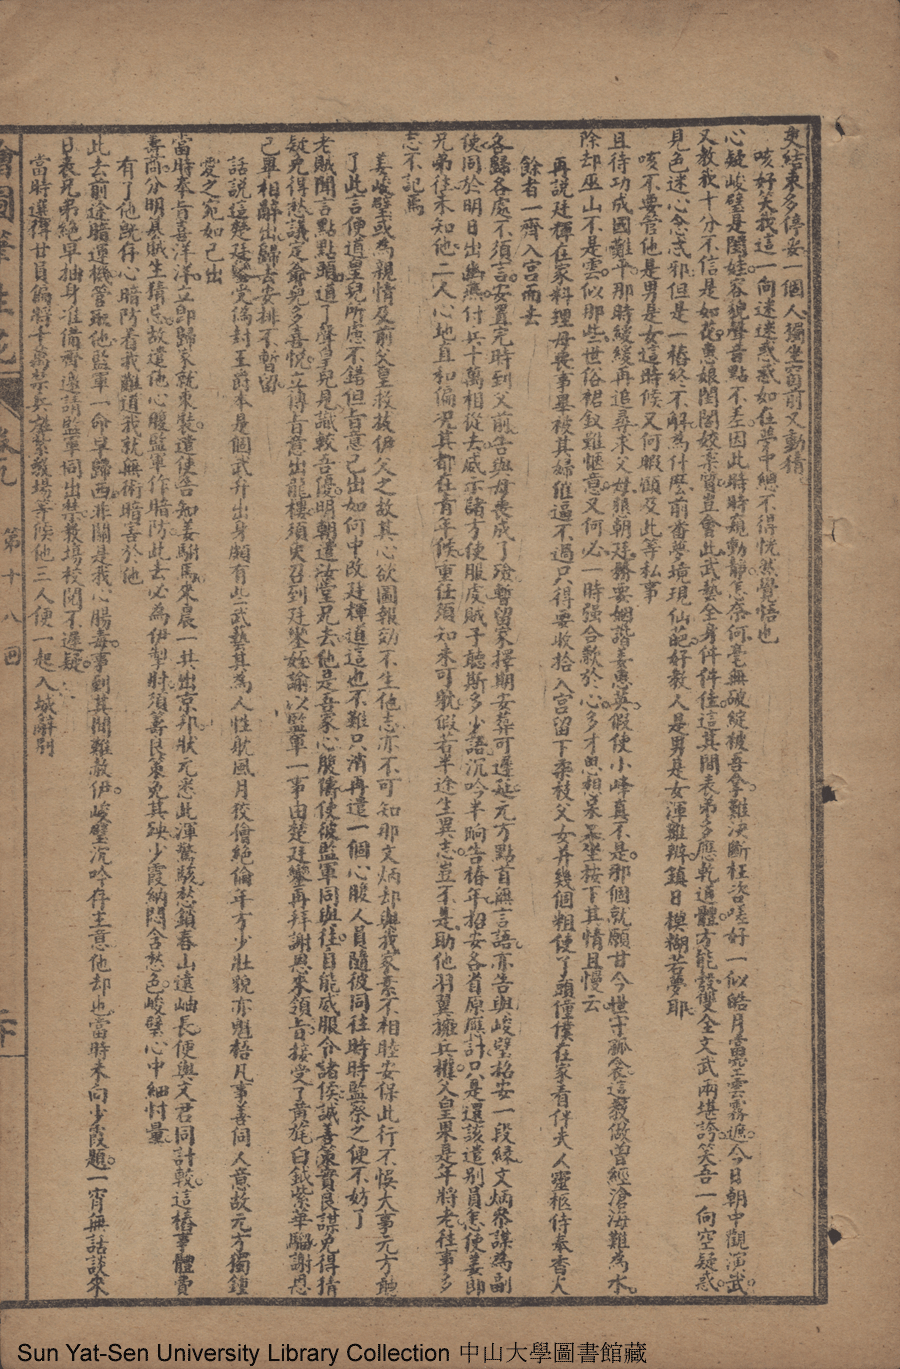 奥結束多停妥一個人獨坐窗前又動猜
咳好大我這一向迷迷惑惑如在夢中總不得恍然覺悟也
心疑峻璧是閨娃容貌聲音點不差因此時時窺動靜怎奈何毫無破綻被吾拿難決斷枉咨嗟好一似皓月當空雲霧遮今日朝中觀演武
又教我十分不信是如花蕙娘閨閣姣柔質豈會此武藝全身件件佳這其間表弟多應乾道體方能設雙全文武兩堪誇笑吾一向空疑惑
見色迷心念忒邪但是一樁終不解為什麼前番夢境現仙葩好教人是男是女渾難辨鎮日模糊若夢耶
咳不要管他是男是女這時候又何暇顧及此等私事
且待功成國難平那時緩緩再追尋未父母願朝廷務要姻諧姜蕙英假使小峰真不是那個就願甘今世守孤衾這教做曾經滄海難為水
除却巫山不是雲似那些世俗裙釵難愜意又何必一時强合歡於心多才思想呆呆坐按下其情且慢云
再說廷輝在家料理母喪事畢被其婦催逼不過只得要收拾入宮留下柔枝父女并幾個粗使丫頭僮僕在家看伴夫人靈柩侍奉香火
餘者一齊入宮而去
各歸各處不須言安置完時到父前告與母喪成了殮暫留家擇期安葬可遲延元方點首無言語亦告與峻璧招安一段緣文炳叅謀為副
使同於明日出幽燕付兵十萬相從去威示諸方使服虔賊子聽斯多少語沉吟半晌告樁年招安各省原應計只是還該遣別員怎使姜郎
兄弟往未知他二人心地直和偏況其都在青年候重任須知未可躭假若半途生異志豈不是助他羽翼擁兵權父皇果是年將老往事多
忘不記焉
姜峻璧或為親情及前父皇救拔伊父之故其心欲圖報効不生他志亦不可知那文炳却與我家素不相睦安保此行不悞大事元方聽
了此言便道皇兒所慮不錯但旨意已出如何中改廷輝道這也不難只消再遣一個心腹人員隨彼同往時時監察之便不妨了
老賊聞言點點頭道了聲皇兒見識較吾優明朝遣汝堂兄去他是吾家心腹儔使彼監軍同與往自能威服令諸侯誠善策實良謀免得猜
疑免得愁議定爺兒多喜悅立傳旨意出龍樓須臾召到廷鑾姪諭以監軍一事由楚廷鑾再拜謝恩來領旨接受了黃旄白鉞紫華騮謝恩
已畢相辭出歸去安排不暫留
話說這楚廷鑾黨偽封王爵本是個武弁出身頗有此武藝其為人性躭風月狡儈絕倫年方少壯貌亦魁梧凡事善伺人意故元方獨鍾
愛之宛如己出
當時奉旨喜洋洋立即歸家就束裝遣使告知姜駙馬來晨一共出京邦狀元悉此渾驚駭愁鎖春山遠岫長便與文君同計較這樁事體費
籌商分明是賊生猜忌故遣他心腹監軍作暗防此去必為伊掣肘須籌良策免其殃少霞納悶含愁色峻璧心中細忖量
有了他既存心暗防着我難道我就無術暗害於他
此去前途膽運機管取他監軍一命早歸西非關是我心腸毒事到其間難赦伊峻璧沉吟存主意他却也當時未向少霞題一宵無話談來
日表兄弟絕早抽身准備齊遠請監軍同出禁教塲校閱不遲疑
當時選得廿員偏將十萬禁兵旌紮綬塲等候他三人便一起入城辭別
繪圖筆生花
卷九
第十八回
二十
Sun Yat-Sen University Library Collection 中山大學圖書館藏